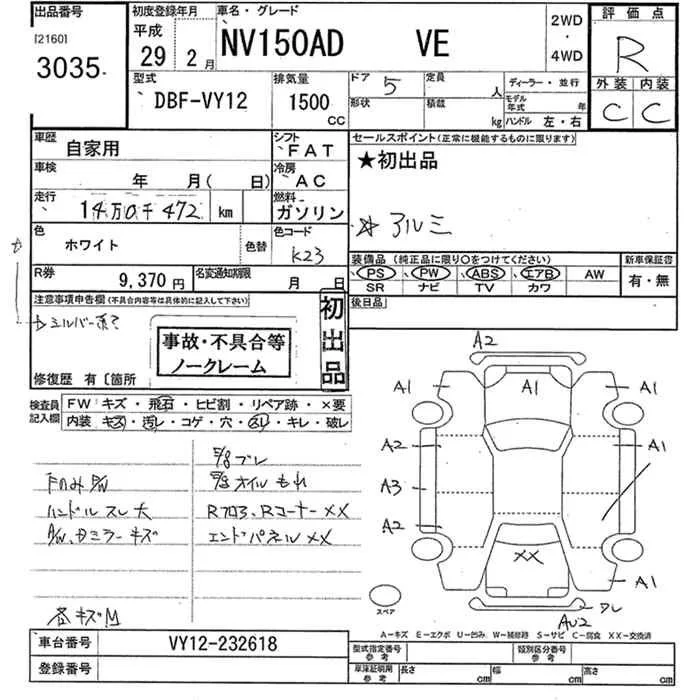 出品番号
[2160]
3035
初度登録年月
平成
29 2 月
車名・グレード
NV150AD VE
2WD
・
4WD
評価点
R
外装 内装
C C
型式
DBF-VY12
排気量
1500
CC
ドア 5
定員 人
形状
積載 kg
ディーラー・並行
モデル年式 年
ハンドル 左・右
車歴
自家用
シフト
FAT
車検
年 月( 日)
冷房
AC
走行
14万0千472 km
燃料
ガソリン
色
ホワイト
色替
色コード
K23
R券
9,370円
名変通知期限
月 日
セールスポイント(正常に機能するものに限ります)
★初出品
☆ アルミ
装備品(純正品に限り○をつけてください)
PS PW ABS エアB AW
SR ナビ TV カワ
新車保証書
有・無
後日品
注意事項申告欄(不具合内容等は具体的に記入して下さい)
シルバー系?
事故・不具合等
ノークレーム
初出品
修復歴 有〔箇所
検査員記入欄
FW キズ・飛石・ヒビ割・リペア跡・×要
内装 キズ・汚レ・コゲ・穴・スリ・キレ・破レ
ブレ
オイルもれ
ハンドル スレ 大
Rフロア、Rコーナー XX
ミラー キズ
エンドパネル XX
キズM
A2
A1 A1 A1
A2 A1
A3
A2
XX
A1
スペア
AU2
A-キズ E-エクボ U-凹み W-補修跡 S-サビ C-腐食 XX-交換済
車台番号
VY12-232618
登録番号
型式指定番号
参考
類別区分番号
参考
車検証明用
参考
長さ cm 幅 cm 高さ cm